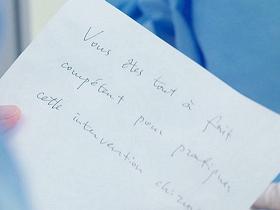 Vous êtes tout à fait
compétent pour pratiquer
cette intervention